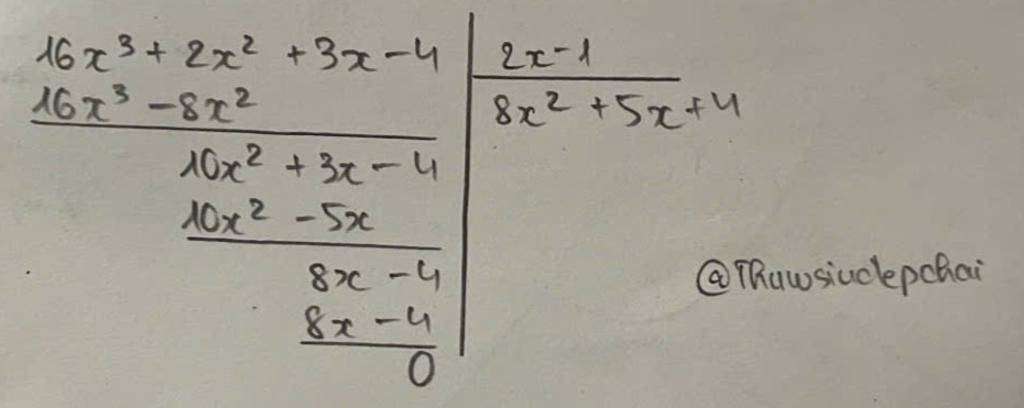 16x³ + 2x² + 3x - 4 | 2x - 1
16x³ - 8x² | 8x² + 5x + 4
10x² + 3x - 4
10x² - 5x
8x - 4
@Thuwsiuclepchai
8x - 4
0